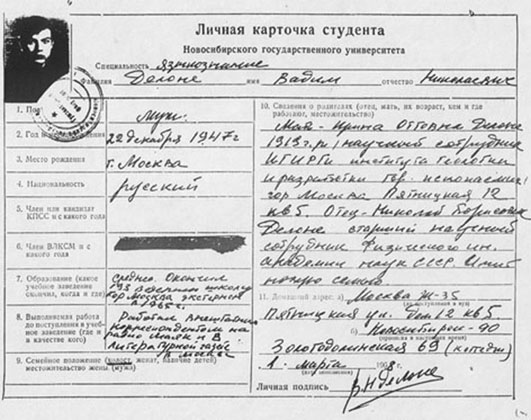 Личная карточка студента
Новосибирского государственного университета
Специальность языкознание
фамилия Делоне имя Вадим отчество Николаевич
1. Пол муж.
2. Год 22 декабря 1947 г
3. Место рождения г. Москва
4. Национальность русский
5. Член или кандидат КПСС и с какого года
6. Член ВЛКСМ и с какого года
7. Образование (какое учебное заведение окончил, когда и где)
среднее. Окончил
школу
гор. Москва экстерном
в 1965 г.
8. Выполняемая работа до поступления в учебное заведение (где и в качестве кого)
Работал внештатным
корреспондентом на
радио Маяк и в
Литературной газете
в Москве
9. Семейное положение (холост, женат, налич. детей) местожительство жены (мужа)
10. Сведения о родителях (отец, мать, их возраст, чем и где работают, местожительство)
Мать - Ирина Оттовна Делоне
1919 г.р. научный сотрудник
института геологии
и разработки гор. ископаемых
гор Москва Пятницкая 12
кв 5. Отец. Николай Борисович
Делоне старший научный
сотрудник Физического ин.
Академии наук СССР. Имит
новую семью
11. Домашний адрес: а) Москва Ж-35
Пятницкая ул. дом 12 кв 5
б) Новосибирск-90
Золотодолинская 69 (котедж)
1 марта 196 г.
Личная подпись ВНДелоне